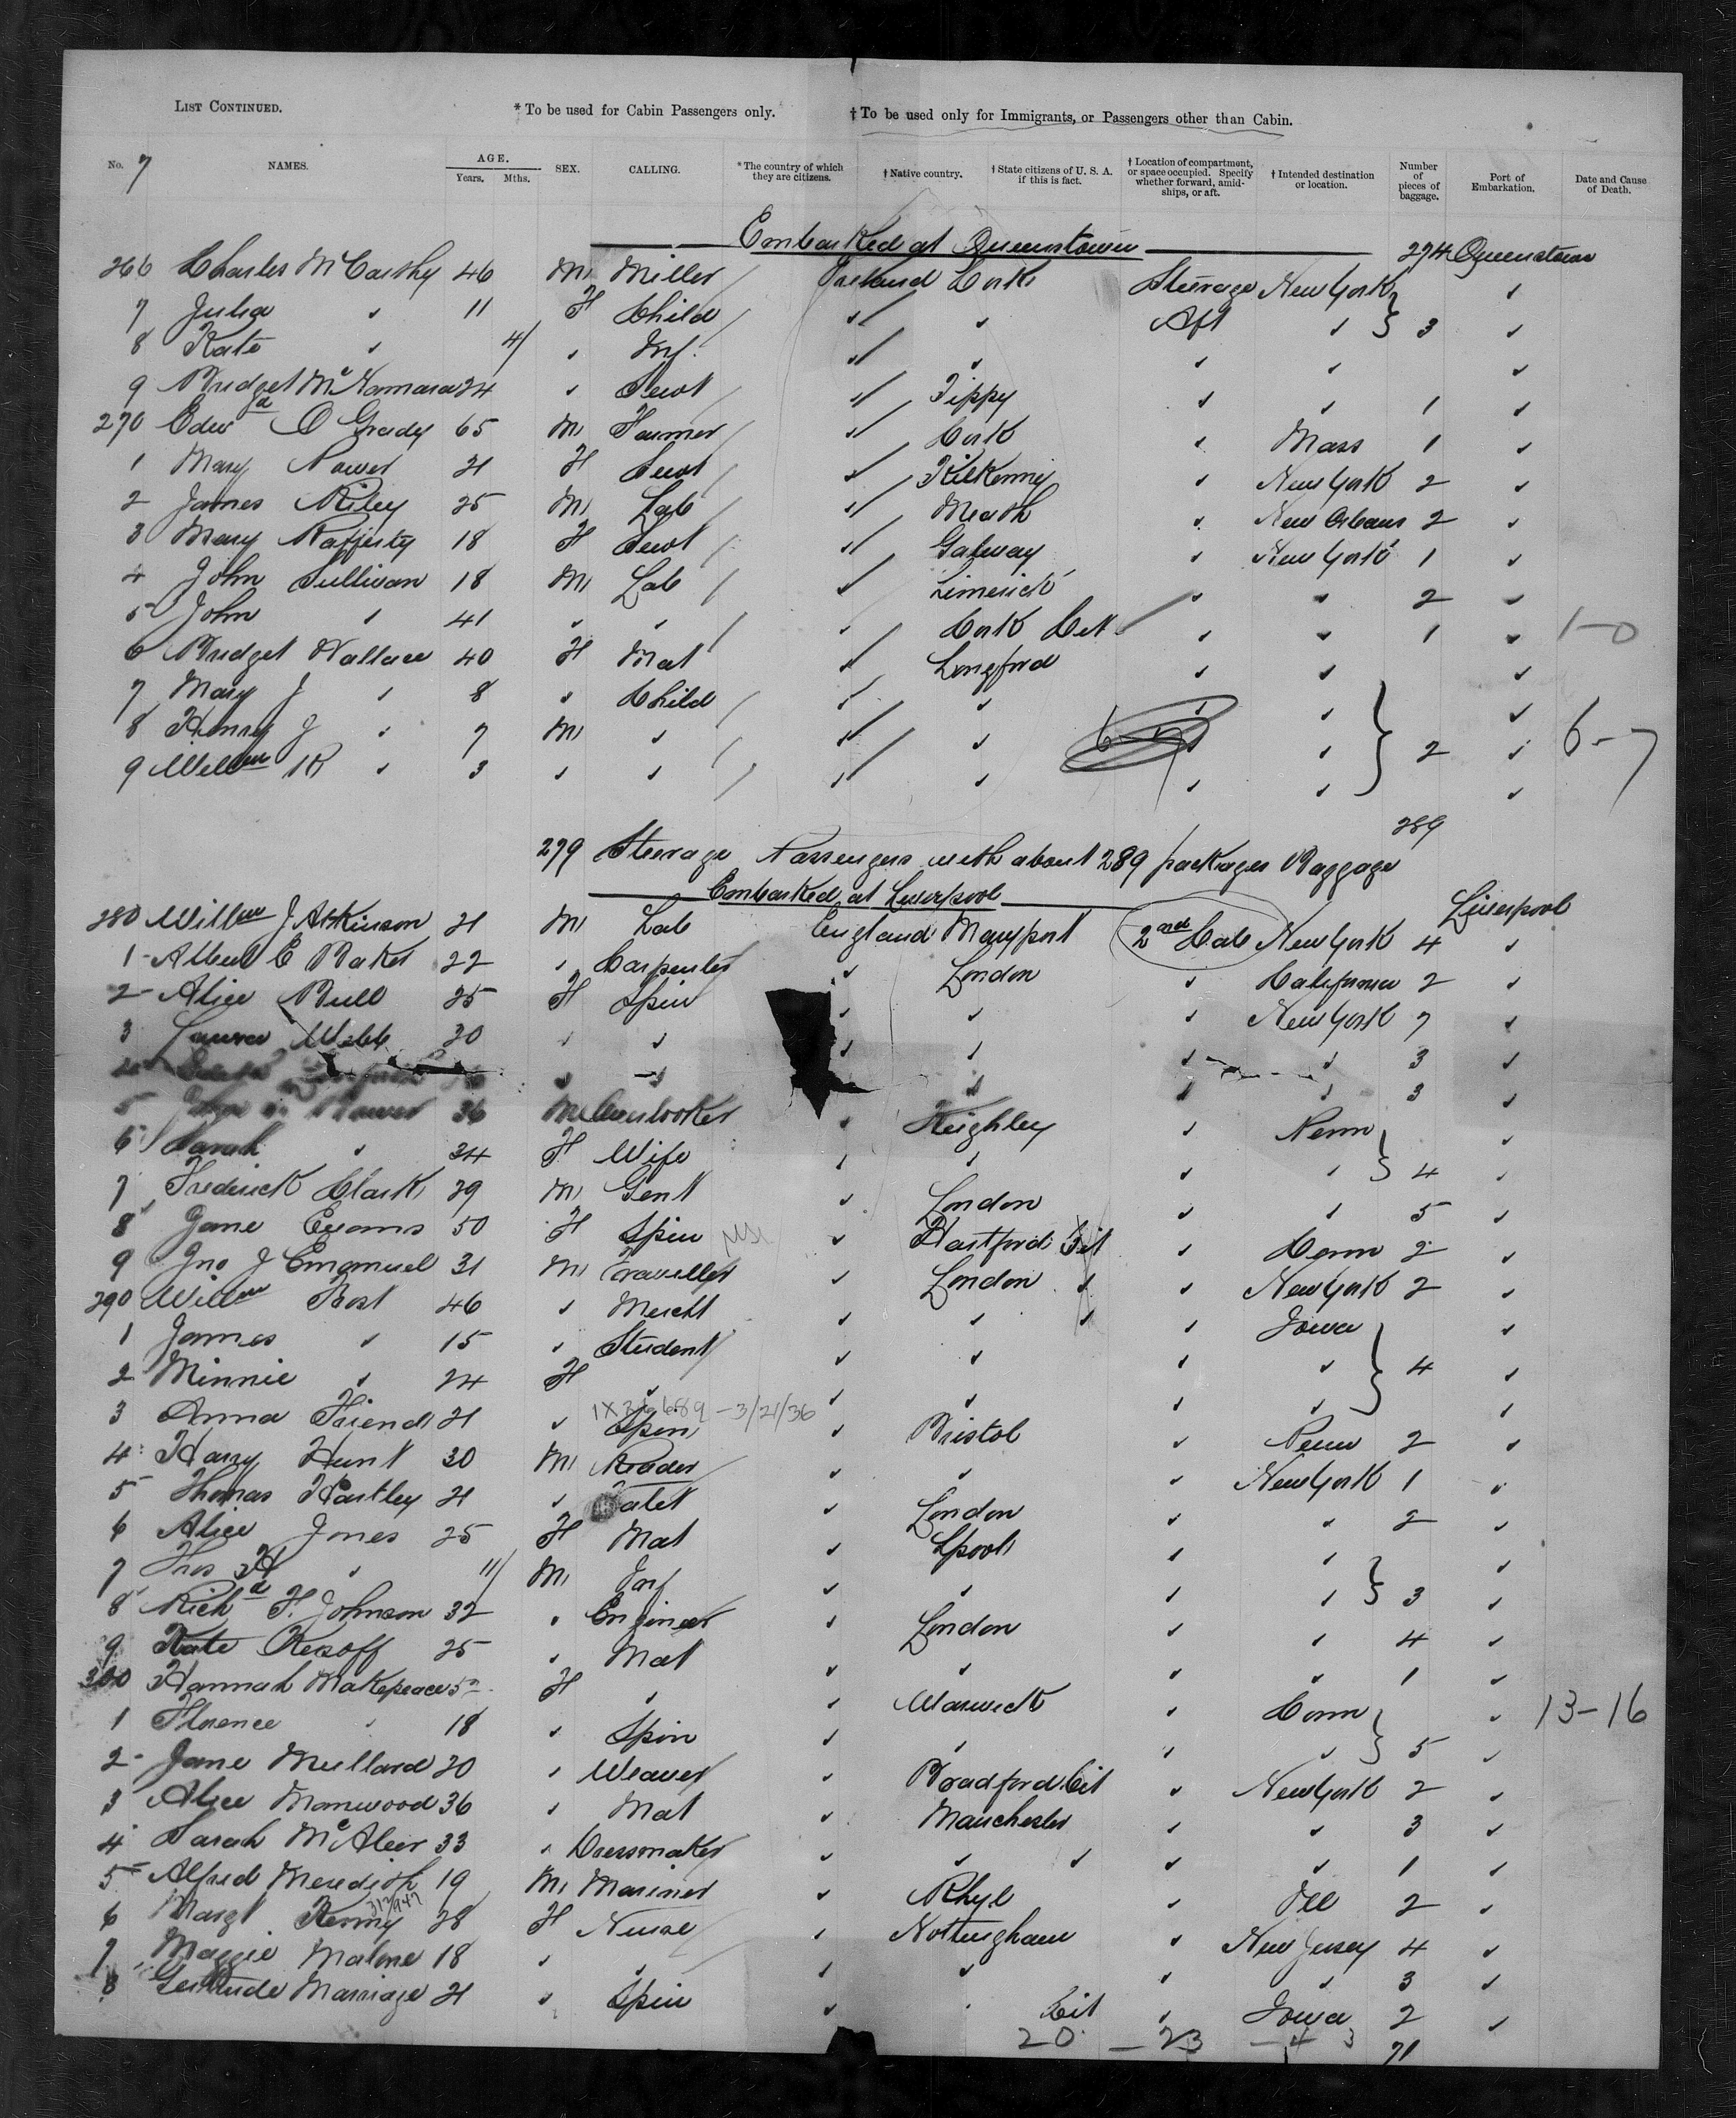 LIST CONTINUED. * To be used for Cabin Passengers only. † To be used only for Immigrants, or Passengers other than Cabin.
No. 7 NAMES. AGE. Years. Mths. SEX. CALLING. * The country of which they are citizens. † Native country. † State citizens of U. S. A. if this is fact. † Location of compartment, or space occupied. Specify whether forward, amidships, or aft. † Intended destination or location. Number of pieces of baggage. Port of Embarkation. Date and Cause of Death.
Embarked at Queenstown 274 Queenstown
266 Charles McCarthy 46 M Miller Ireland Cork Steerage New York
7 Julia " 11 F Child " " Aft " 3 "
8 Kate " 4/ " Inf. " " " " "
9 Bridget McNamara 24 " Servt " Tippy " " 1 "
270 Edwd O Grady 65 M Farmer " Cork " Mass 1 "
1 Mary Power 21 F Servt " Kilkenny " New York 2 "
2 James Riley 25 M Lab " Meath " New Orleans 2 "
3 Mary Rafferty 18 F Servt " Galway " New York 1 "
4 John Sullivan 18 M Lab " Limerick " " 2 "
5 John " 41 " " " Cork Cit " " 1 " 1-0
6 Bridget Wallace 40 F Mat " Longford " " "
7 Mary J " 8 " Child " " " " "
8 Henry J " 7 M " " " " " 2 " 6-7
9 Willm R " 3 " " " " " " "
289
279 Steerage Passengers with about 289 packages Baggage
Embarked at Liverpool Liverpool
280 Willm J Atkinson 21 M Lab England Maryport 2nd Cab New York 4 "
1 Albert E Baker 22 " Carpenter " London " California 2 "
2 Alice Bull 25 F Spin " " " New York 7 "
3 Laura Webb 20 " " " " " " 3 "
4 " " " " " " 3 "
5 Bower 36 M Overlooker " Keighley " Penn "
6 Sarah " 34 F Wife " " " " 4 "
7 Frederick Clark 29 M Gent " London " " 5 "
8 Jane Evans 50 F Spin " Hartford Cit " Conn 2 "
9 Jno J Emanuel 31 M Traveller " London " " New York 2 "
290 Willm Frost 46 " Mercht " " " " Iowa "
1 James " 15 " Student " " " " 4 "
2 Minnie " 24 F " " " " " "
1X 3/21/36
3 Anna Friend 21 " Spin " Bristol " Penn 2 "
4 Harry Hunt 30 M Reader " " " New York 1 "
5 Thomas Hartley 21 " Valet " London " " 2 "
6 Alice Jones 25 F Mat " Lpool " " "
7 Thos H " 11/ M Inf " " " " 3 "
8 Richd F. Johnson 32 " Engineer " London " " 4 "
9 Kate Kesoff 25 " Mat " " " " 1 "
300 Hannah Makepeace F " " Warwick " Conn " 13-16
1 Florence " 18 " Spin " " " " 5 "
2 Jane Mullard 20 " Weaver " Bradford Cit " New York 2 "
3 Alice Manwood 36 " Mat " Manchester " " 3 "
4 Sarah McAleer 33 " Dressmaker " " " " " 1 "
5 Alfred Meredith 19 M Mariner " Rhyl " Ill 2 "
6 Margt Kenny 28 F Nurse " Nottingham " New Jersey 4 "
7 Maggie Malone 18 " " " " " " 3 "
8 Gertrude Marriage 21 " Spin " " Cit " Iowa 2 "
20 - 23 - 4 3 71